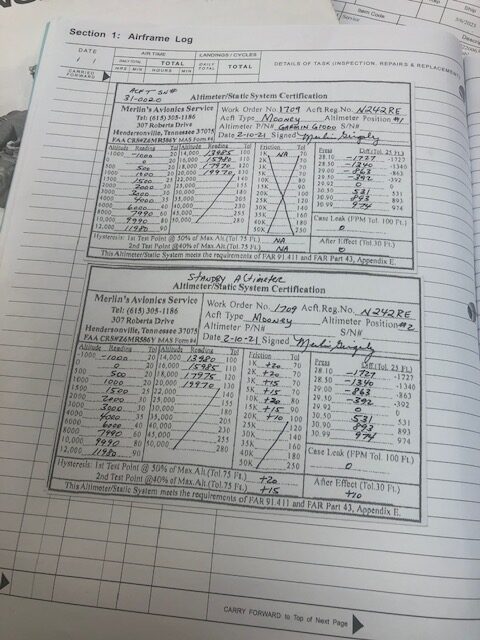 Item Code
Service
3/9/2023
Section 1: Airframe Log
DATE
/ /
CARRIED FORWARD
AIR TIME
TOTAL
HRS MIN HOURS MIN
LANDINGS / CYCLES
DAILY TOTAL TOTAL
DETAILS OF TASK (INSPECTION, REPAIRS & REPLACEMENT
ACFT SN#
31-0020
Altimeter/Static System Certification
Merlin's Avionics Service
Tel: (615) 305-1186
307 Roberta Drive
Hendersonville, Tennessee 37075
FAA CRS#Z6MR586Y MAS Form #6
Work Order No. 1709 Acft.Reg.No. N242RE
Acft Type Mooney Altimeter Position #1
Altimeter P/N# GARMIN G1000 S/N#
Date 2-10-21 Signed
Altitude Reading Tol Altitude Reading Tol
-1000 -1000 20 14,000 13985 100
0 0 20 16,000 15980 110
500 500 20 18,000 17970 120
1000 1000 20 20,000 19970 130
1500 1500 25 22,000 140
2000 2000 30 25,000 155
3000 3000 30 30,000 180
4000 4000 35 35,000 205
6000 6000 40 40,000 230
8000 7990 60 45,000 255
10,000 9990 80 50,000 280
12,000 11980 90
Friction Tol
1K NA 70
2K 70
3K 70
5K 70
10K 80
15K 90
20K 100
25K 120
30K 140
35K 160
40K 180
50K 250
Press Diff(Tol. 25 FT.)
28.10 -1727 -1727
28.50 -1340 -1340
29.00 -863 -863
29.50 -392 -392
29.92 0 0
30.50 531 531
30.90 893 893
30.99 974 974
Case Leak (FPM Tol. 100 Ft.)
0
Hysteresis: 1st Test Point @ 50% of Max.Alt.(Tol.75 Ft.) NA
2nd Test Point @40% of Max.Alt.(Tol.75 Ft.) NA
After Effect (Tol.30 Ft.)
0
This Altimeter/Static System meets the requirements of FAR 91.411 and FAR Part 43, Appendix E.
STANDBY Altimeter
Altimeter/Static System Certification
Merlin's Avionics Service
Tel: (615) 305-1186
307 Roberta Drive
Hendersonville, Tennessee 37075
FAA CRS#Z6MR586Y MAS Form #6
Work Order No. 1709 Acft.Reg.No. N242RE
Acft Type Mooney Altimeter Position #2
Altimeter P/N# S/N#
Date 2-10-21 Signed
Altitude Reading Tol Altitude Reading Tol
-1000 -1000 20 14,000 13980 100
0 0 20 16,000 15985 110
500 500 20 18,000 17975 120
1000 1000 20 20,000 19970 130
1500 1500 25 22,000 140
2000 2000 30 25,000 155
3000 3000 30 30,000 180
4000 4000 35 35,000 205
6000 6000 40 40,000 230
8000 7990 60 45,000 255
10,000 9990 80 50,000 280
12,000 11980 90
Friction Tol
1K +20 70
2K +20 70
3K +15 70
5K +15 70
10K +20 80
15K +15 90
20K +10 100
25K 120
30K 140
35K 160
40K 180
50K 250
Press Diff(Tol. 25 FT.)
28.10 -1727 -1727
28.50 -1340 -1340
29.00 -863 -863
29.50 -392 -392
29.92 0 0
30.50 531 531
30.90 893 893
30.99 974 974
Case Leak (FPM Tol. 100 Ft.)
0
Hysteresis: 1st Test Point @ 50% of Max.Alt.(Tol.75 Ft.) +20
2nd Test Point @40% of Max.Alt.(Tol.75 Ft.) +15
After Effect (Tol.30 Ft.)
+10
This Altimeter/Static System meets the requirements of FAR 91.411 and FAR Part 43, Appendix E.
CARRY FORWARD to Top of Next Page